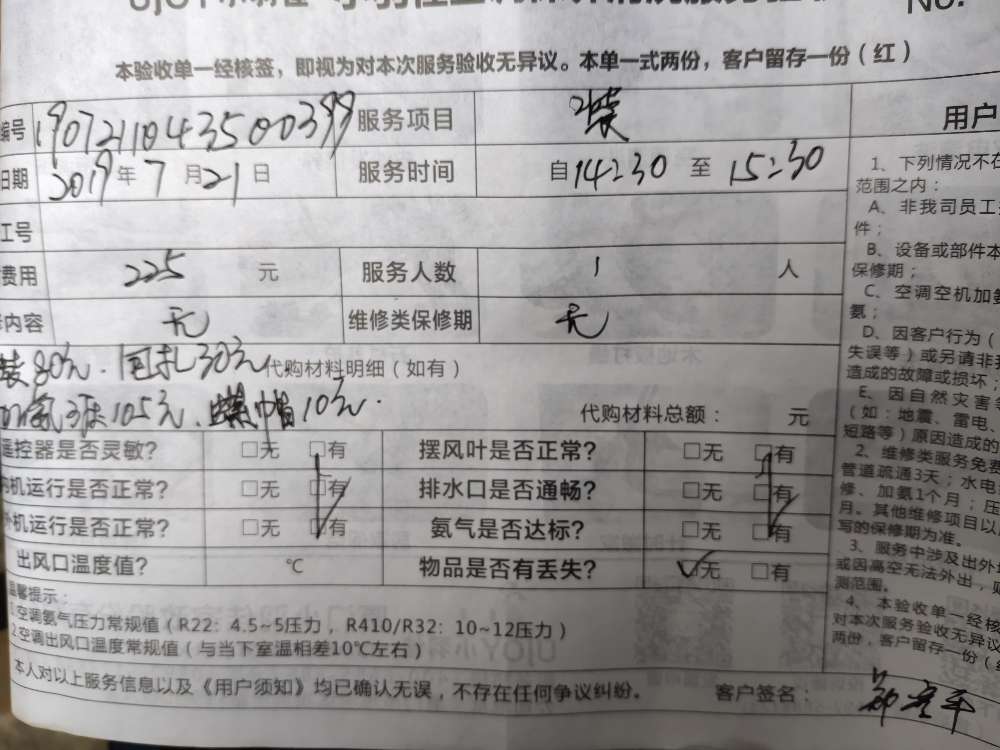 本验收单一经核签，即视为对本次服务验收无异议。本单一式两份，客户留存一份（红）
编号 190721104350039 服务项目 装
日期 2019年7月21日 服务时间 自14:30 至 15:30
工号
费用 225 元 服务人数 1 人
内容 无 维修类保修期 无
装80元．包扎30元 代购材料明细（如有）
加氨3压105元、螺帽10元． 代购材料总额： 元
遥控器是否灵敏？ □无 □有 摆风叶是否正常？ □无 □有
内机运行是否正常？ □无 □有 排水口是否通畅？ □无 □有
外机运行是否正常？ □无 □有 氨气是否达标？ □无 □有
出风口温度值？ ℃ 物品是否有丢失？ □无 □有
温馨提示：
1.空调氨气压力常规值（R22：4.5~5压力，R410/R32：10~12压力）
2.空调出风口温度常规值（与当下室温相差10℃左右）
本人对以上服务信息以及《用户须知》均已确认无误，不存在任何争议纠纷。 客户签名：
用户
1、下列情况不在
范围之内：
A、非我司员工
件；
B、设备或部件本
保修期；
C、空调空机加氨
氨；
D、因客户行为（
失误等）或另请非我
造成的故障或损坏；
E、因自然灾害
（如：地震、雷电、
短路等）原因造成的
2、维修类服务免费
管道疏通3天；水电
修、加氨1个月；压
月。其他维修项目以
写的保修期为准。
3、服务中涉及出外
或因高空无法外出，
测范围。
4、本验收单一经核
对本次服务验收无异议
两份，客户留存一份（